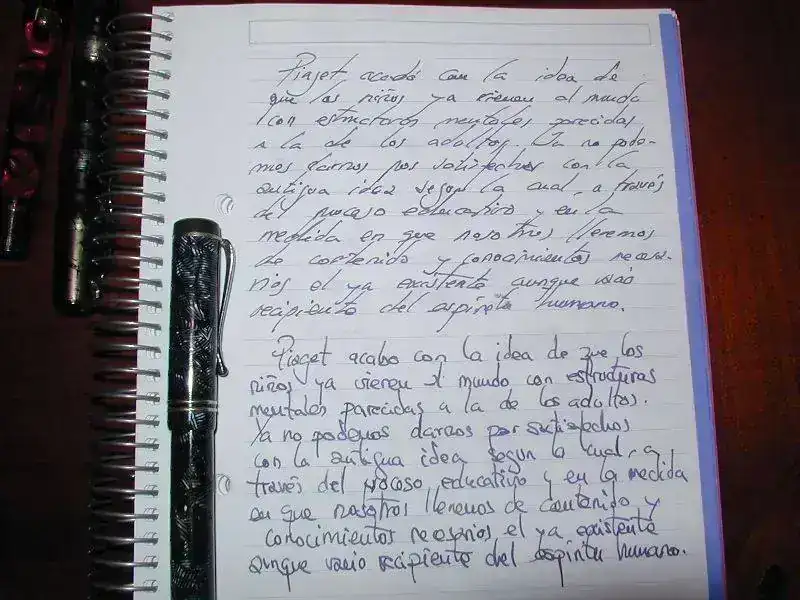 Piaget acabó con la idea de
que los niños ya vienen al mundo
con estructuras mentales parecidas
a la de los adultos. Ya no pode-
mos darnos por satisfechos con la
antigua idea segun la cual, a través
del proceso educativo y en la
medida en que nosotros llenemos
de contenido y conocimientos necesa-
rios el ya existente aunque vacio
recipiente del espíritu humano.
Piaget acabo con la idea de que los
niños ya vienen al mundo con estructuras
mentales parecidas a la de los adultos.
Ya no podemos darnos por satisfechos
con la antigua idea segun la cual, a
través del proceso educativo y en la medida
en que nosotros llenemos de contenido y
conocimientos necesarios el ya existente
aunque vacio recipiente del espíritu humano.